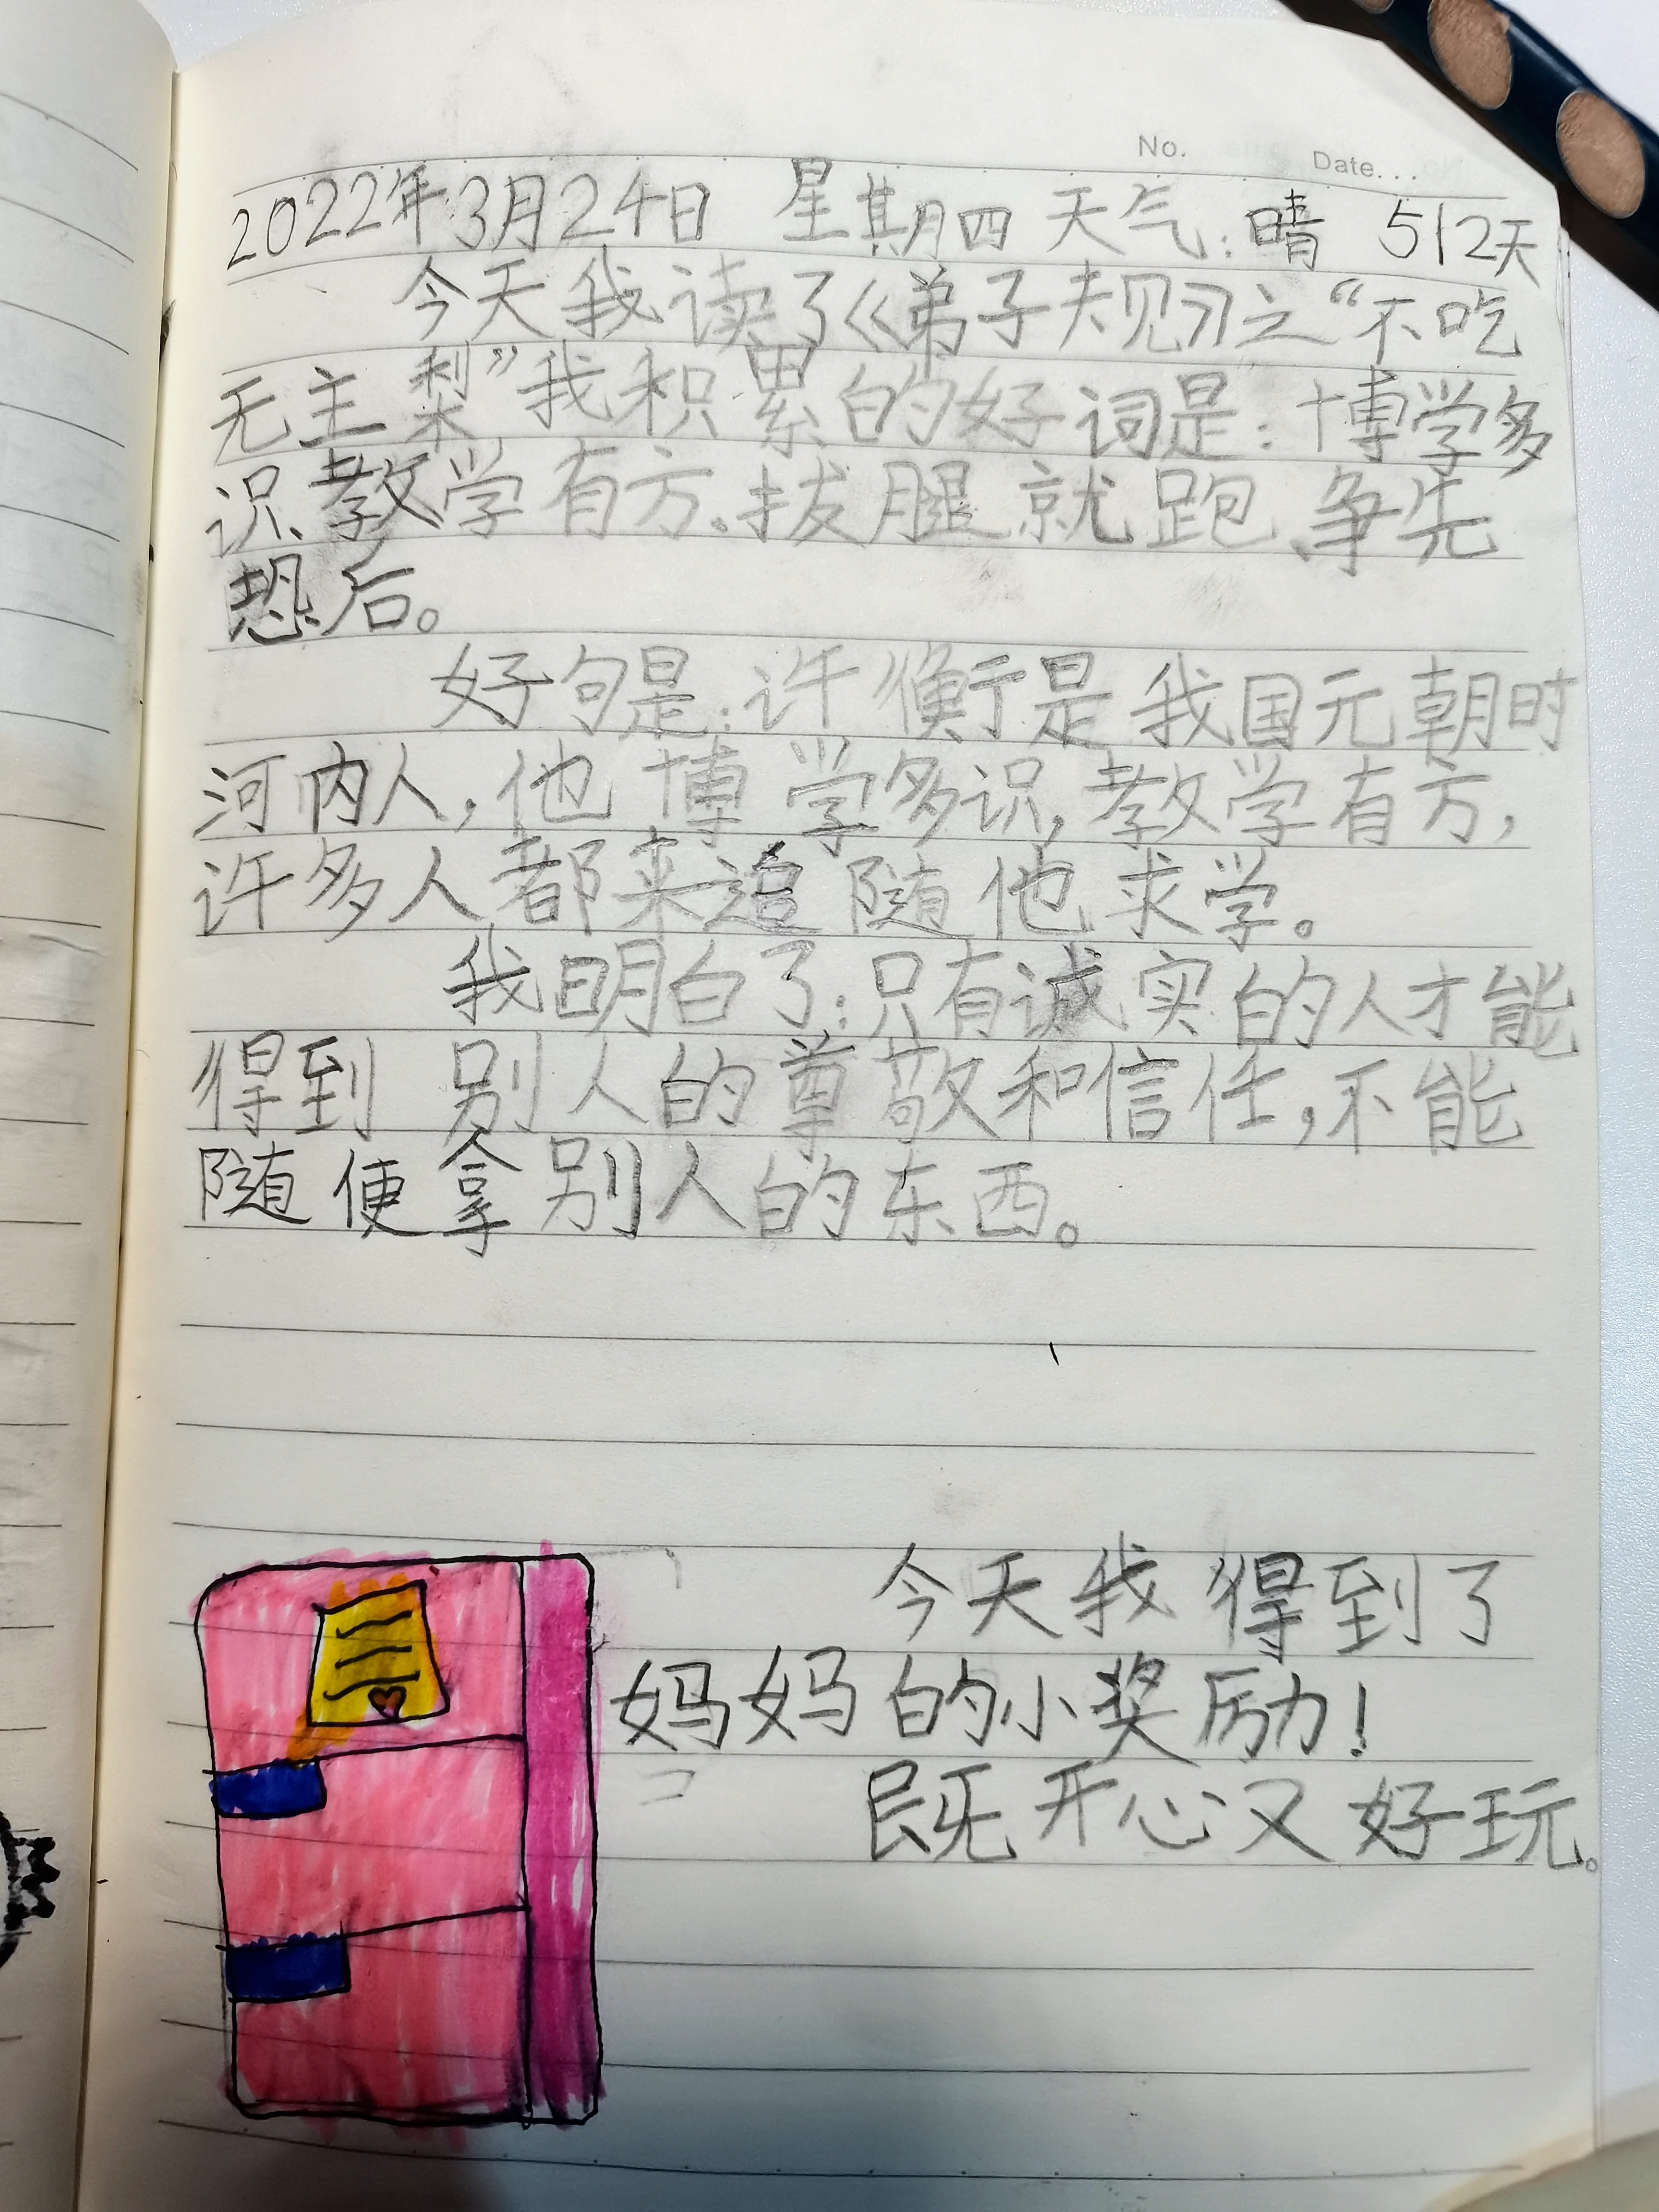 No.
Date...
2022年3月24日 星期四 天气:晴 512天
今天我读了《弟子规》之“不吃
无主梨”我积累的好词是:博学多
识、教学有方、拔腿就跑、争先
恐后。
好句是:许衡是我国元朝时
河内人,他博学多识,教学有方,
许多人都来追随他求学。
我明白了:只有诚实的人才能
得到别人的尊敬和信任,不能
随便拿别人的东西。
今天我得到了
妈妈的小奖励!
既开心又好玩。